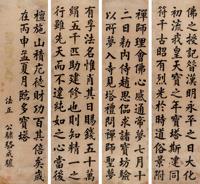 佛之授記昔漢明永平之日大化
初流我皇天寶之年寶塔斯建同
符千古昭有烈光於時道俗景附
禪師理會佛心感通帝夢七月十
二日勑內侍趙思偘求諸寶坊驗
以所夢入寺見塔禮問禪師聖夢
有孚法名惟肖其日賜錢五十萬
絹五千匹助建修也則知精一之
行雖先天而不違純如之心當後
檀施山積庀徒度財功百其倍矣歲
在丙申孟夏月臨多寶塔
法正
公驌駱成驤